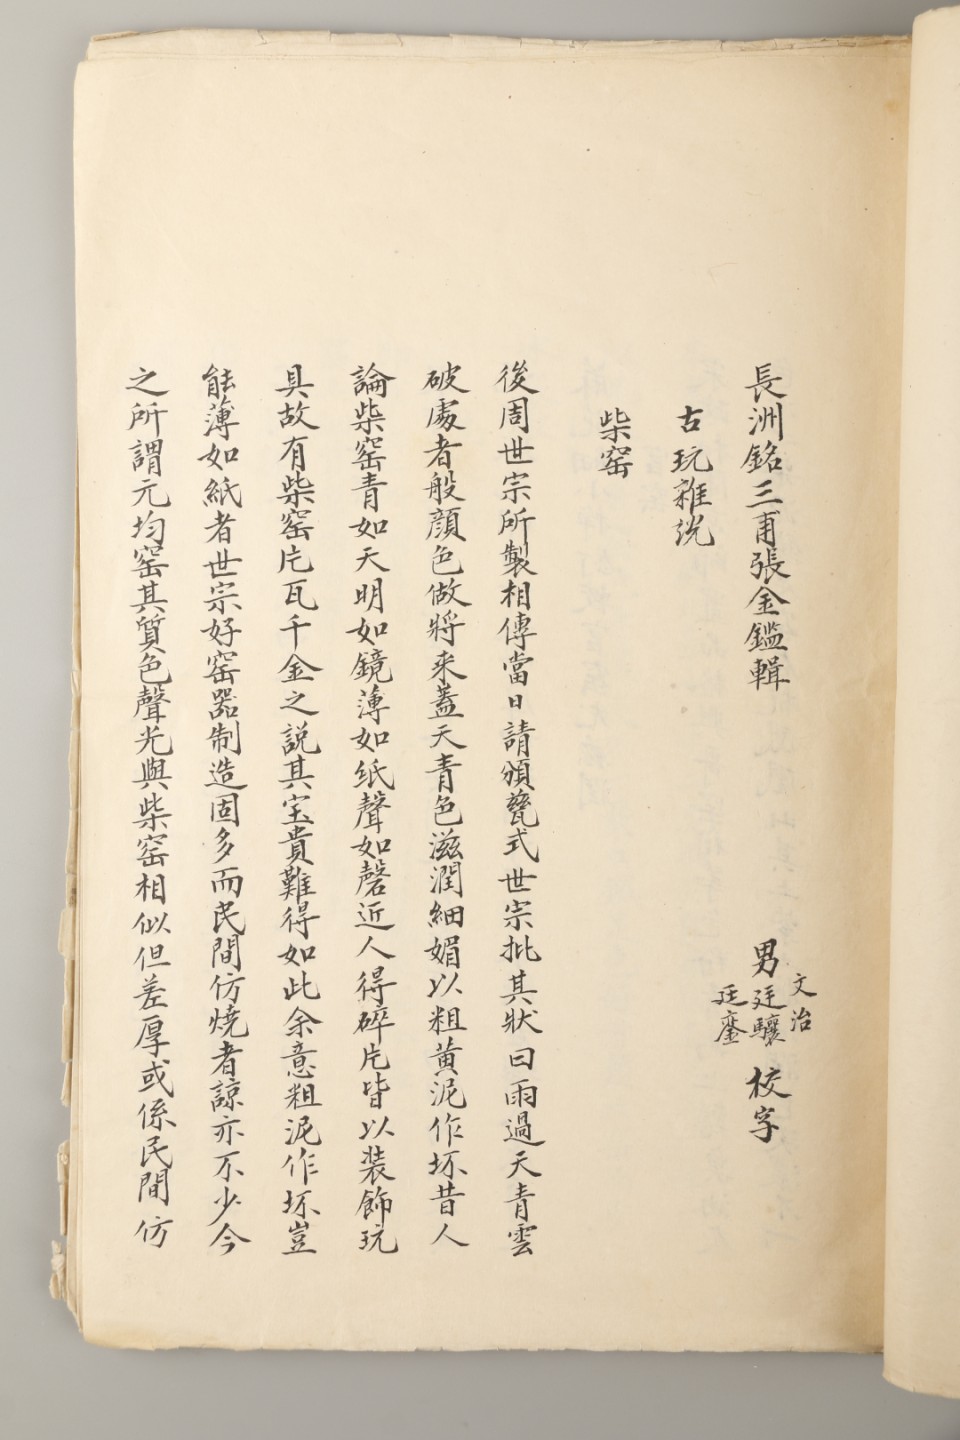 長洲銘三甫張金鑑輯
男文治
廷驤
廷鑾
校字
古玩雜說
柴窑
後周世宗所製相傳當日請頒甆式世宗批其狀曰雨過天青雲
破處者般顔色做將来蓋天青色滋潤細媚以粗黄泥作坯昔人
論柴窑青如天明如鏡薄如紙聲如磬近人得碎片皆以装飾玩
具故有柴窑片瓦千金之説其宝貴難得如此余意粗泥作坯豈
能薄如紙者世宗好窑器制造固多而民間仿燒者諒亦不少今
之所謂元均窑其質色聲光與柴窑相似但差厚或係民間仿